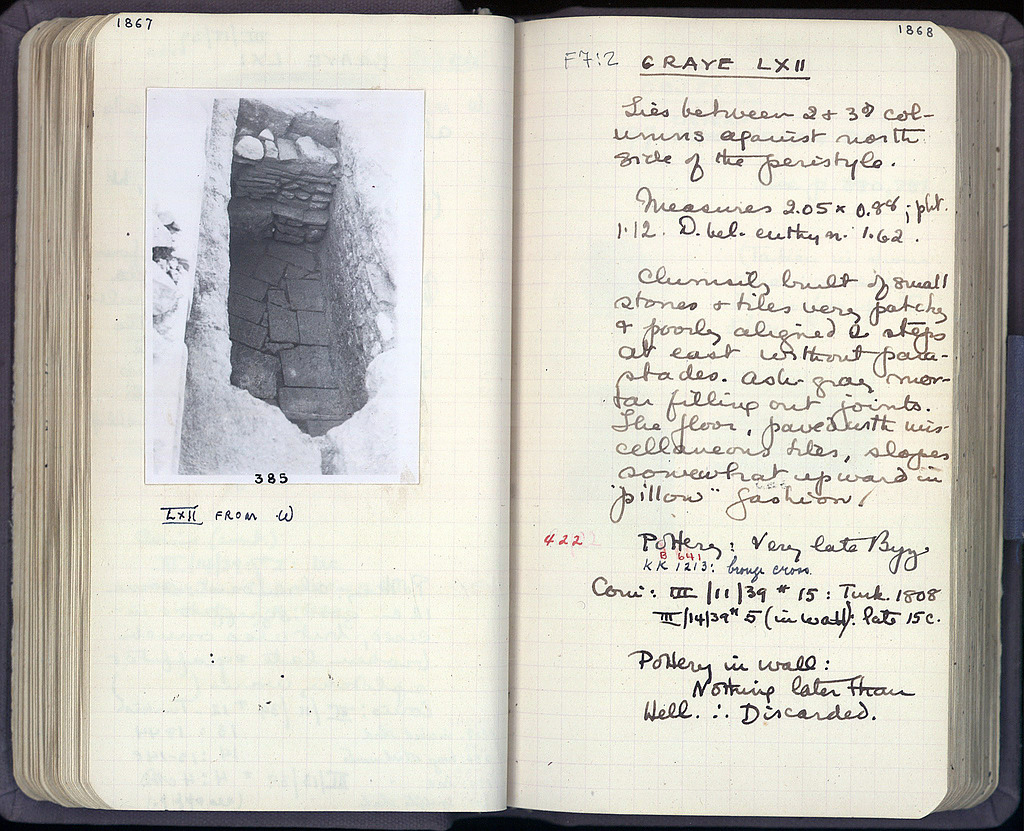 1867
385
LXII FROM W
1868
F7:2 GRAVE LXII
Lies between 2 & 3d col-
umns against north
side of the peristyle.
Measures 2.05 x 0.88; pht.
1.12. D. bel. euthyn. 1.62.
Clumsily built of small
stones & tiles very patchy
& poorly aligned steps
at east without para-
stades. Ash gray mor-
tar filling out joints.
The floor, paved with mis-
cellaneous tiles, slopes
somewhat upward in
"pillow" fashion.
422 Pottery: Very late Byz
B 641
KK 1213: bronze cross.
Coin: III/11/39 # 15: Turk. 1808
III/14/39 # 5 (in wall): late 15c.
Pottery in wall:
Nothing later than
Hell. ∴ Discarded.